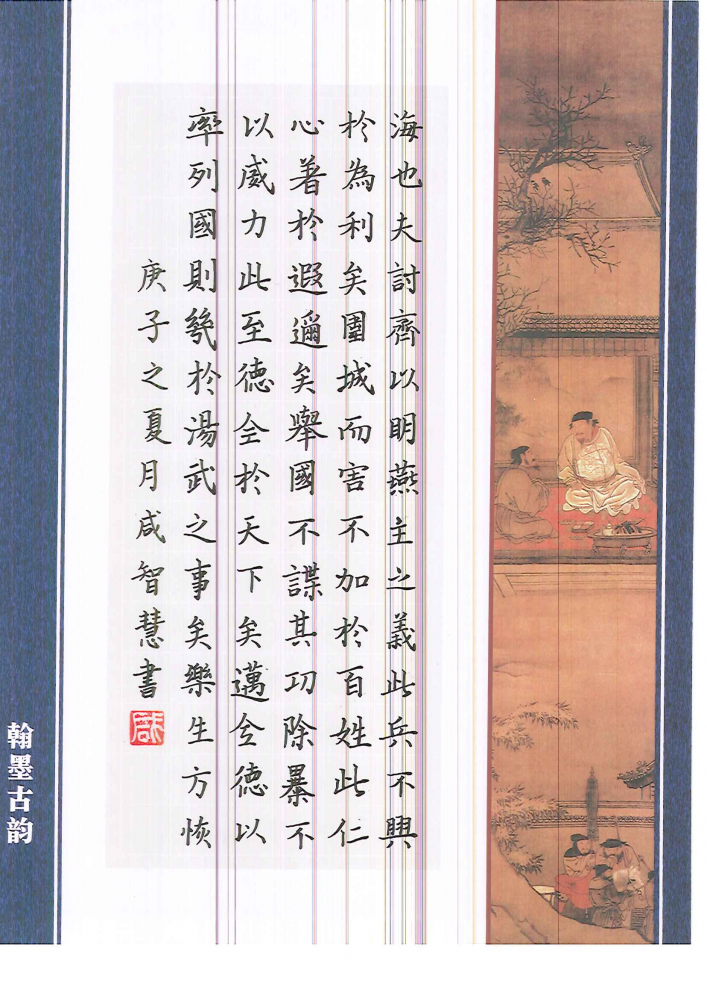 海也夫討齊以明燕主之義此兵不興
於為利矣圍城而害不加於百姓此仁
心著於遐邇矣舉國不謀其功除暴不
以威力此至德全於天下矣邁全德以
率列國則幾於湯武之事矣樂生方恢
庚子之夏月咸智慧書
翰墨古韵